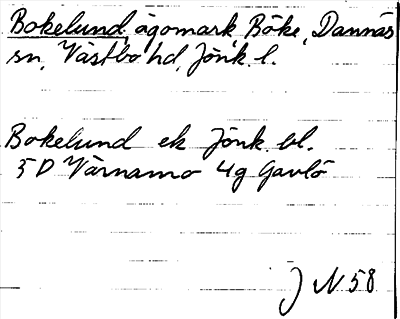 Bokelund, ägomark, Böke, Dannäs
sn, Västbo hd, Jönk. l.
Bokelund ek Jönk. bl.
5 D Värnamo 4g Gavlö
J N 58